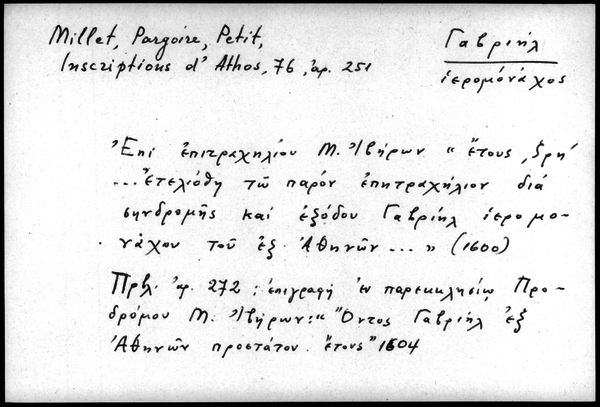 Millet, Pargoire, Petit,
Inscriptions d'Athos, 76, ἀρ. 251
Γαβριήλ
ἱερομόναχος
Ἐπί ἐπιτραχηλίου Μ. Ἰβήρων " ἔτους ͵ζρη'
... Ἐτελιόθη τῶ παρόν ἐπητραχήλιον διά
συνδρομῆς καί ἐξόδου Γαβριήλ ἱερομο-
νάχου τοῦ ἐξ Ἀθηνῶν ... " (1600)
Πρβλ. ἀρ. 272 : ἐπιγραφή ἐν παρεκκλησίῳ Προ-
δρόμου Μ. Ἰβήρων: " Ὄντος Γαβριήλ ἐξ
Ἀθηνῶν προστάτου. ἔτους" 1604